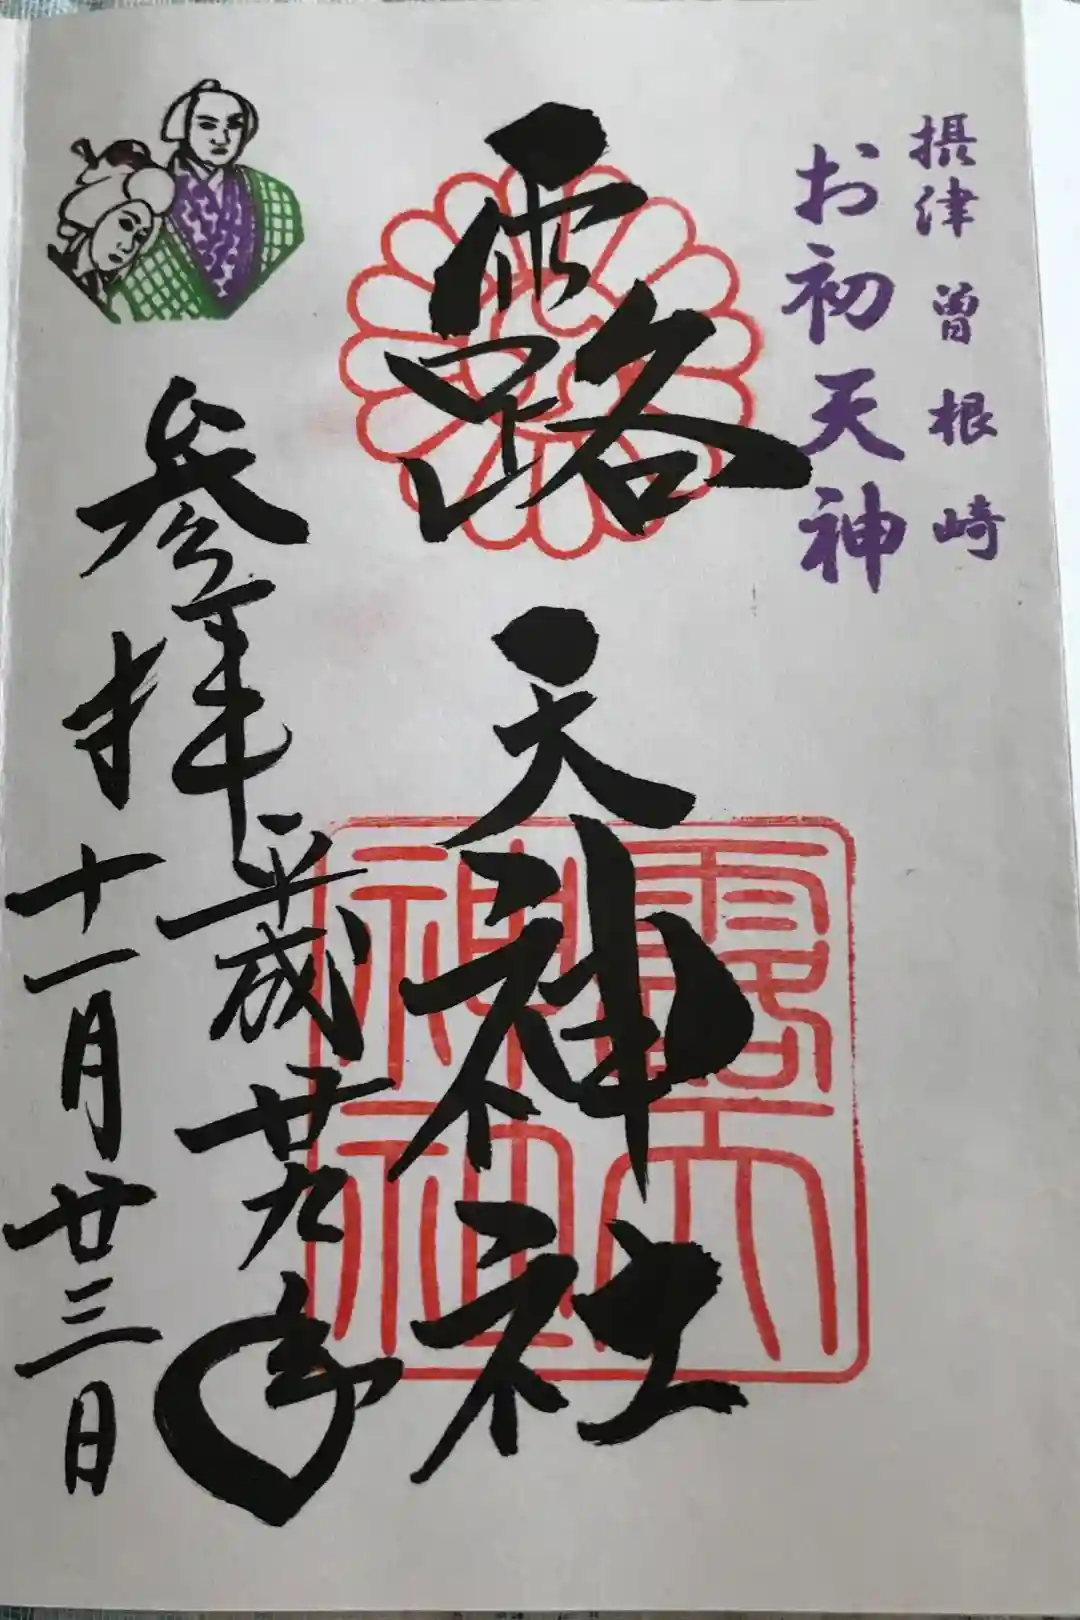 摂津曽根崎
お初天神
露天神社
露天
神社
参拝
平成廿九年
十一月廿三日